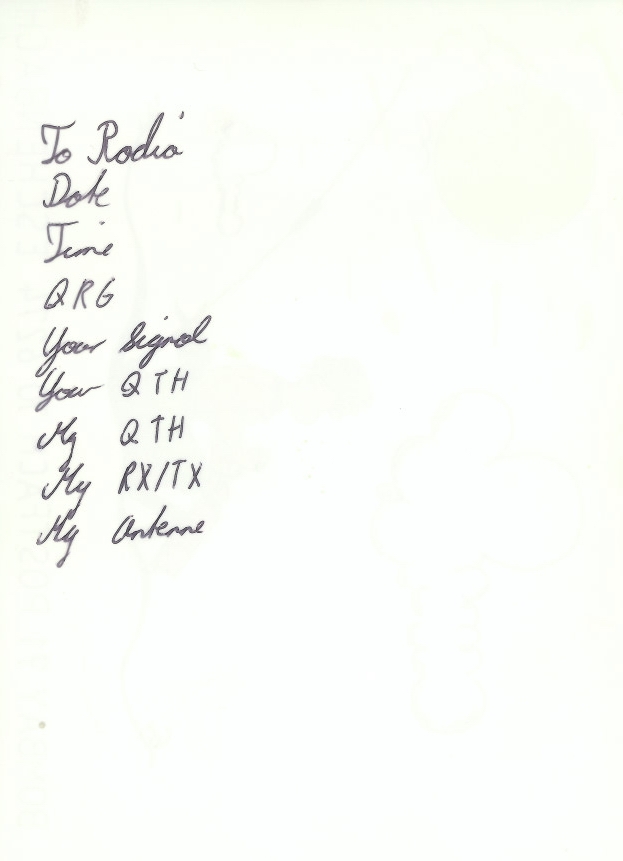 To Radio
Date
Time
QRG
Your Signal
Your QTH
My QTH
My RX/TX
My Antenne